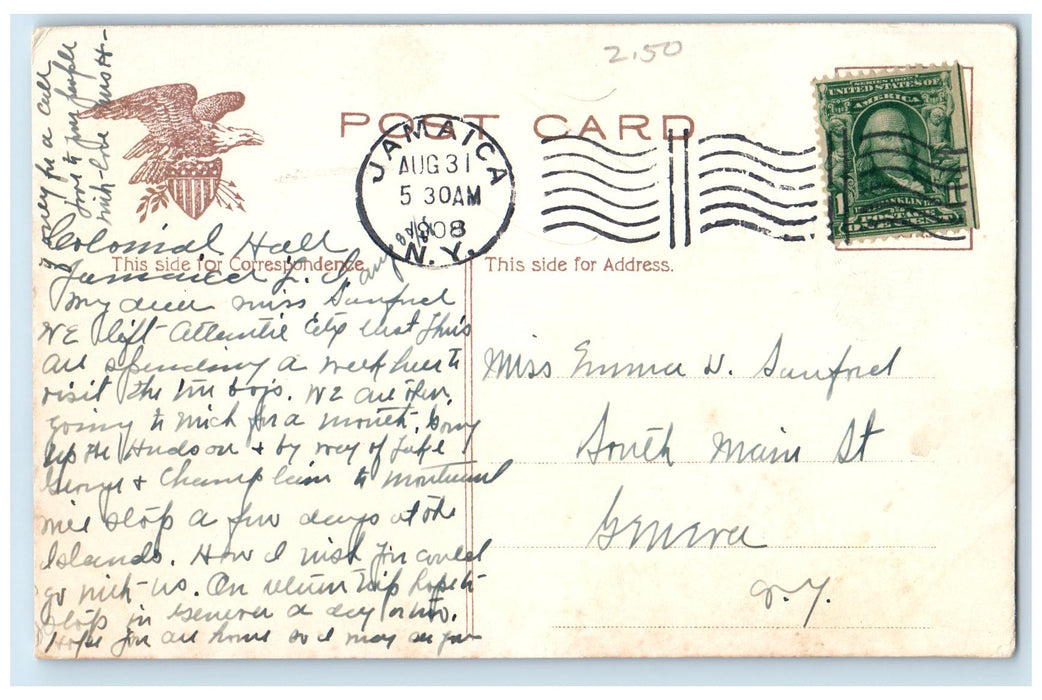 2.50
POST CARD
JAMAICA
AUG 31
5 30 AM
1908
N.Y.
SERIES 1902
UNITED STATES OF
AMERICA
FRANKLIN
POSTAGE
ONE CENT
1
This side for Correspondence.
This side for Address.
Colonial Hall
Jamaica L. I. Aug
My dear Miss Sanford
We left Atlantic City last
are spending a week here to
visit the boys. We are then
going to Mich for a month. Going
up the Hudson & by way of Lake
George & Champlain to Montreal
will stop a few days at the
Islands. How I wish you could
go with us. On return trip hope to
stop in Geneva a day or two.
Hope you are home so I may see you
if only for a call
love to your people
with love
Miss Emma D. Sanford
South Main St
Geneva
N.Y.